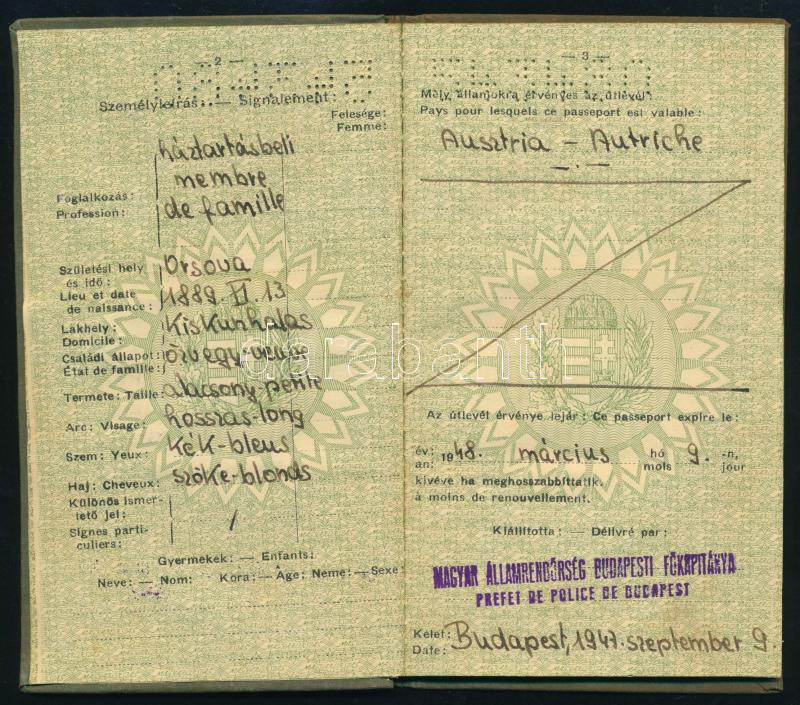 — 2 —
Személyleírás: — Signalement:
Felesége:
Femme:
háztartásbeli
membre
Foglalkozás:
Profession:
de famille
Születési hely
és idő:
Orsova
Lieu et date
de naissance:
1889. VI. 13
Lakhely:
Domicile:
Kiskunhalas
Családi állapot:
État de famille:
özvegy-veuve
Termete: Taille:
alacsony-petite
Arc: Visage:
hosszas-long
Szem: Yeux:
kék-bleus
Haj: Cheveux:
szőke-blonds
Különös ismer-
tető jel:
/
Signes parti-
culiers:
Gyermekek: — Enfants:
Neve: — Nom: Kora: — Âge: Neme: — Sexe:
— 3 —
Mely államokra érvényes az útlevél:
Pays pour lesquels ce passeport est valable:
Ausztria - Autriche
Az útlevél érvénye lejár: Ce passeport expire le:
év: 1948. március hó 9. -n,
an: mois jour
kivéve ha meghosszabbíttatik.
à moins de renouvellement.
Kiállította: — Délivré par:
MAGYAR ÁLLAMRENDŐRSÉG BUDAPESTI FŐKAPITÁNYA
PREFET DE POLICE DE BUDAPEST
Kelet: Budapest, 1947. szeptember 9.
Date:
darabanth